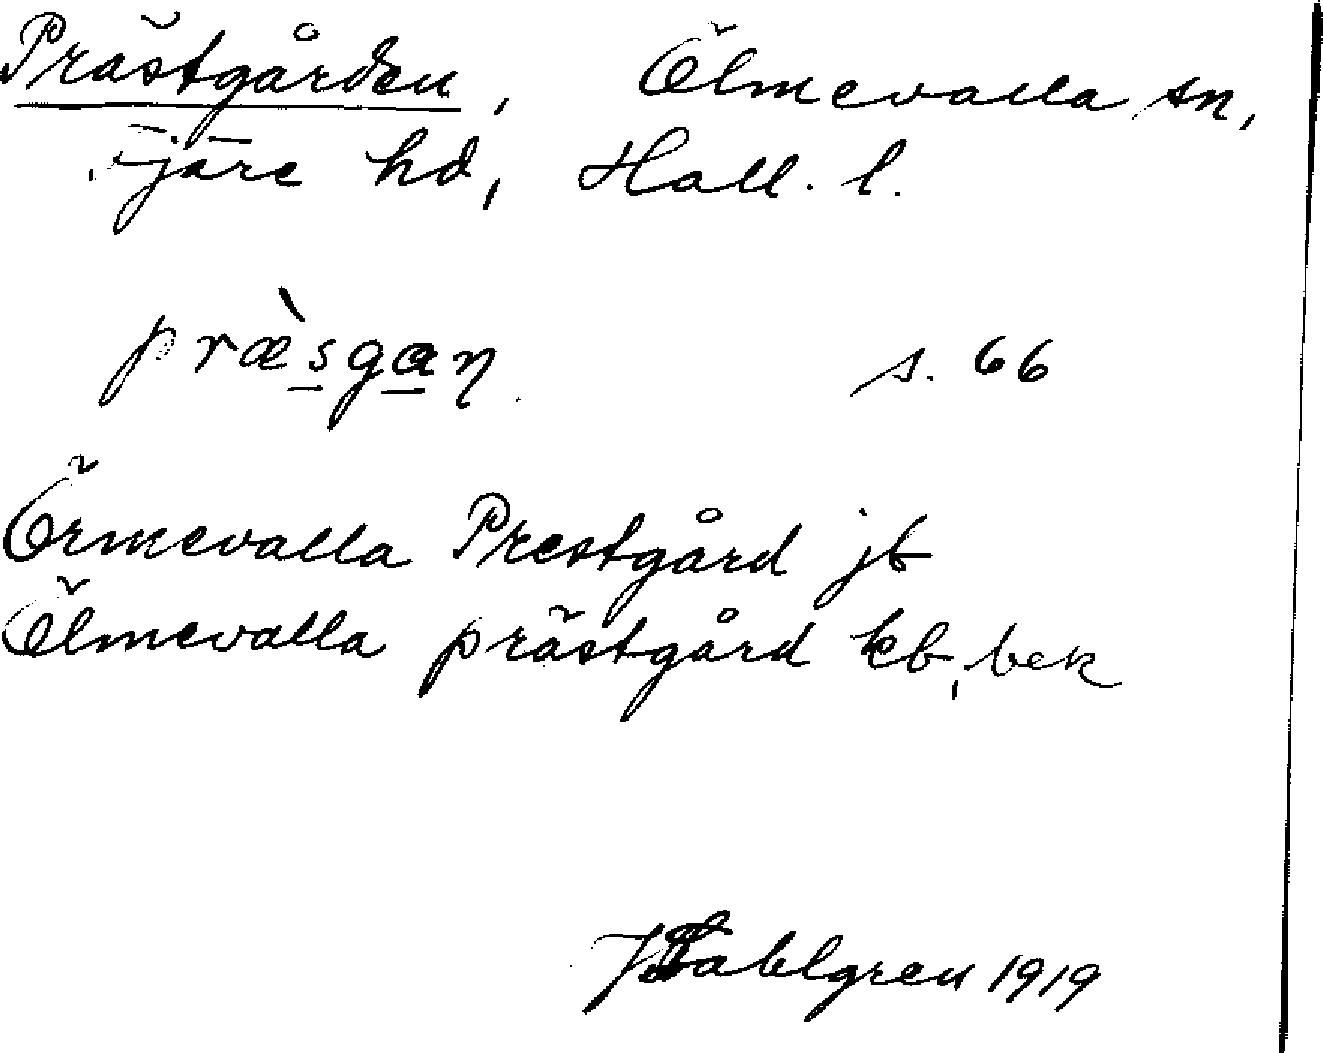 Prästgården, Ölmevalla sn,
Fjäre hd, Hall. l.
præ̀sgaŋ s. 66
Örmevalla Prestgård jb
Ölmevalla prästgård kb, bek
J. Sahlgren 1919